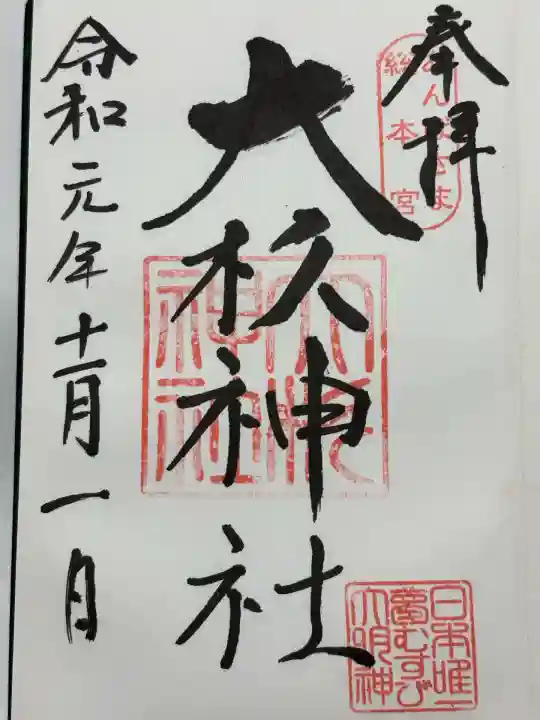 奉拝
あんばさま
総本宮
大杉神社
大杉
神社
令和元年十一月一日
日本唯一
夢むすび
大明神